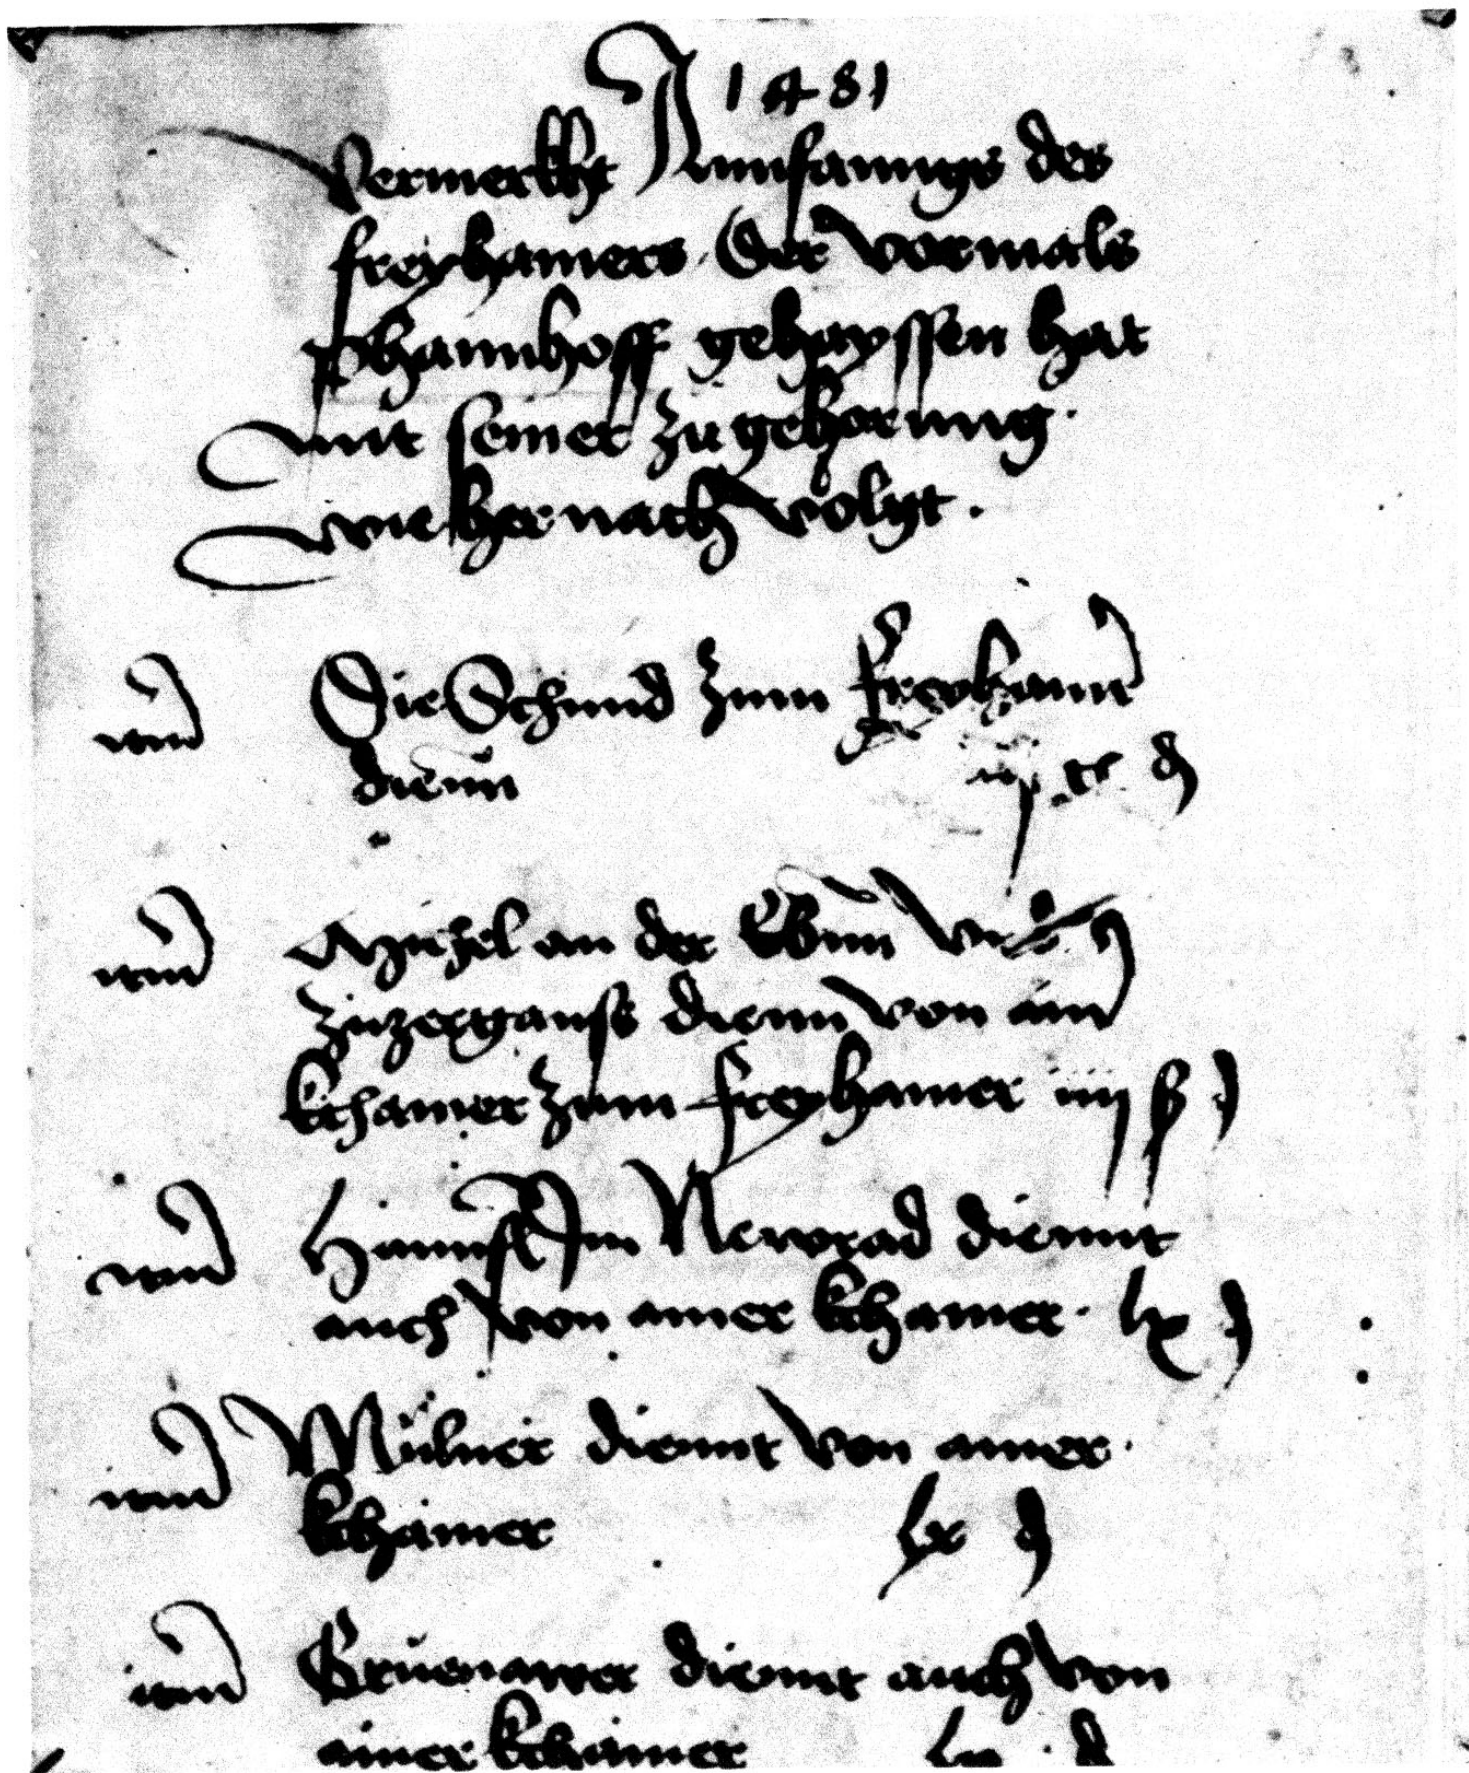 1481
Vermerkht Annfanngs des
freyhamers. Der vormals
Phannhoff gehayssen hat
mit seiner zugehorung.
wie hernach volgt.
item Die Schmid zum Freyhamer
dienn iij d
item an der
dienn von ain
khamer zum freyhamer iiij ß d
item Hannsl Im Newrad diennt
auch von ainer khamer. lx d
item Mülner diennt von ainer.
khamer lx d
item Gruenawer diennt auch von
ainer khamer lx . d